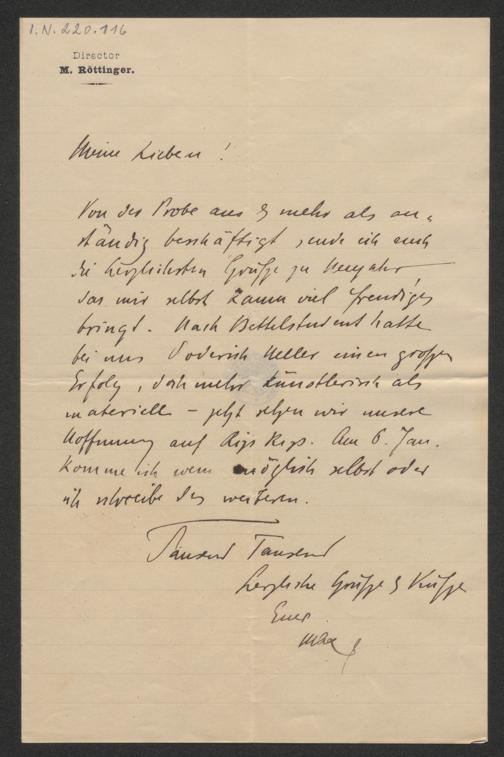 I.N. 220.116
Director
M. Röttinger.
Meine Lieben!
Von der Probe aus & mehr als an-
ständig beschäftigt, sende ich euch
die herzlichsten Grüße zu Neujahr,
das mir selbst kaum viel freudiges
bringt. Nach Bettelstudent hatte
bei uns Roderich Heller einen großen
Erfolg, doch mehr künstlerisch als
materiell – jetzt setzen wir unsere
Hoffnung auf Rips Rips. Am 6. Jan.
komme ich wenn möglich selbst oder
ich schreibe des weiteren.
Tausend Tausend
herzliche Grüße & Küsse
Euer
Max